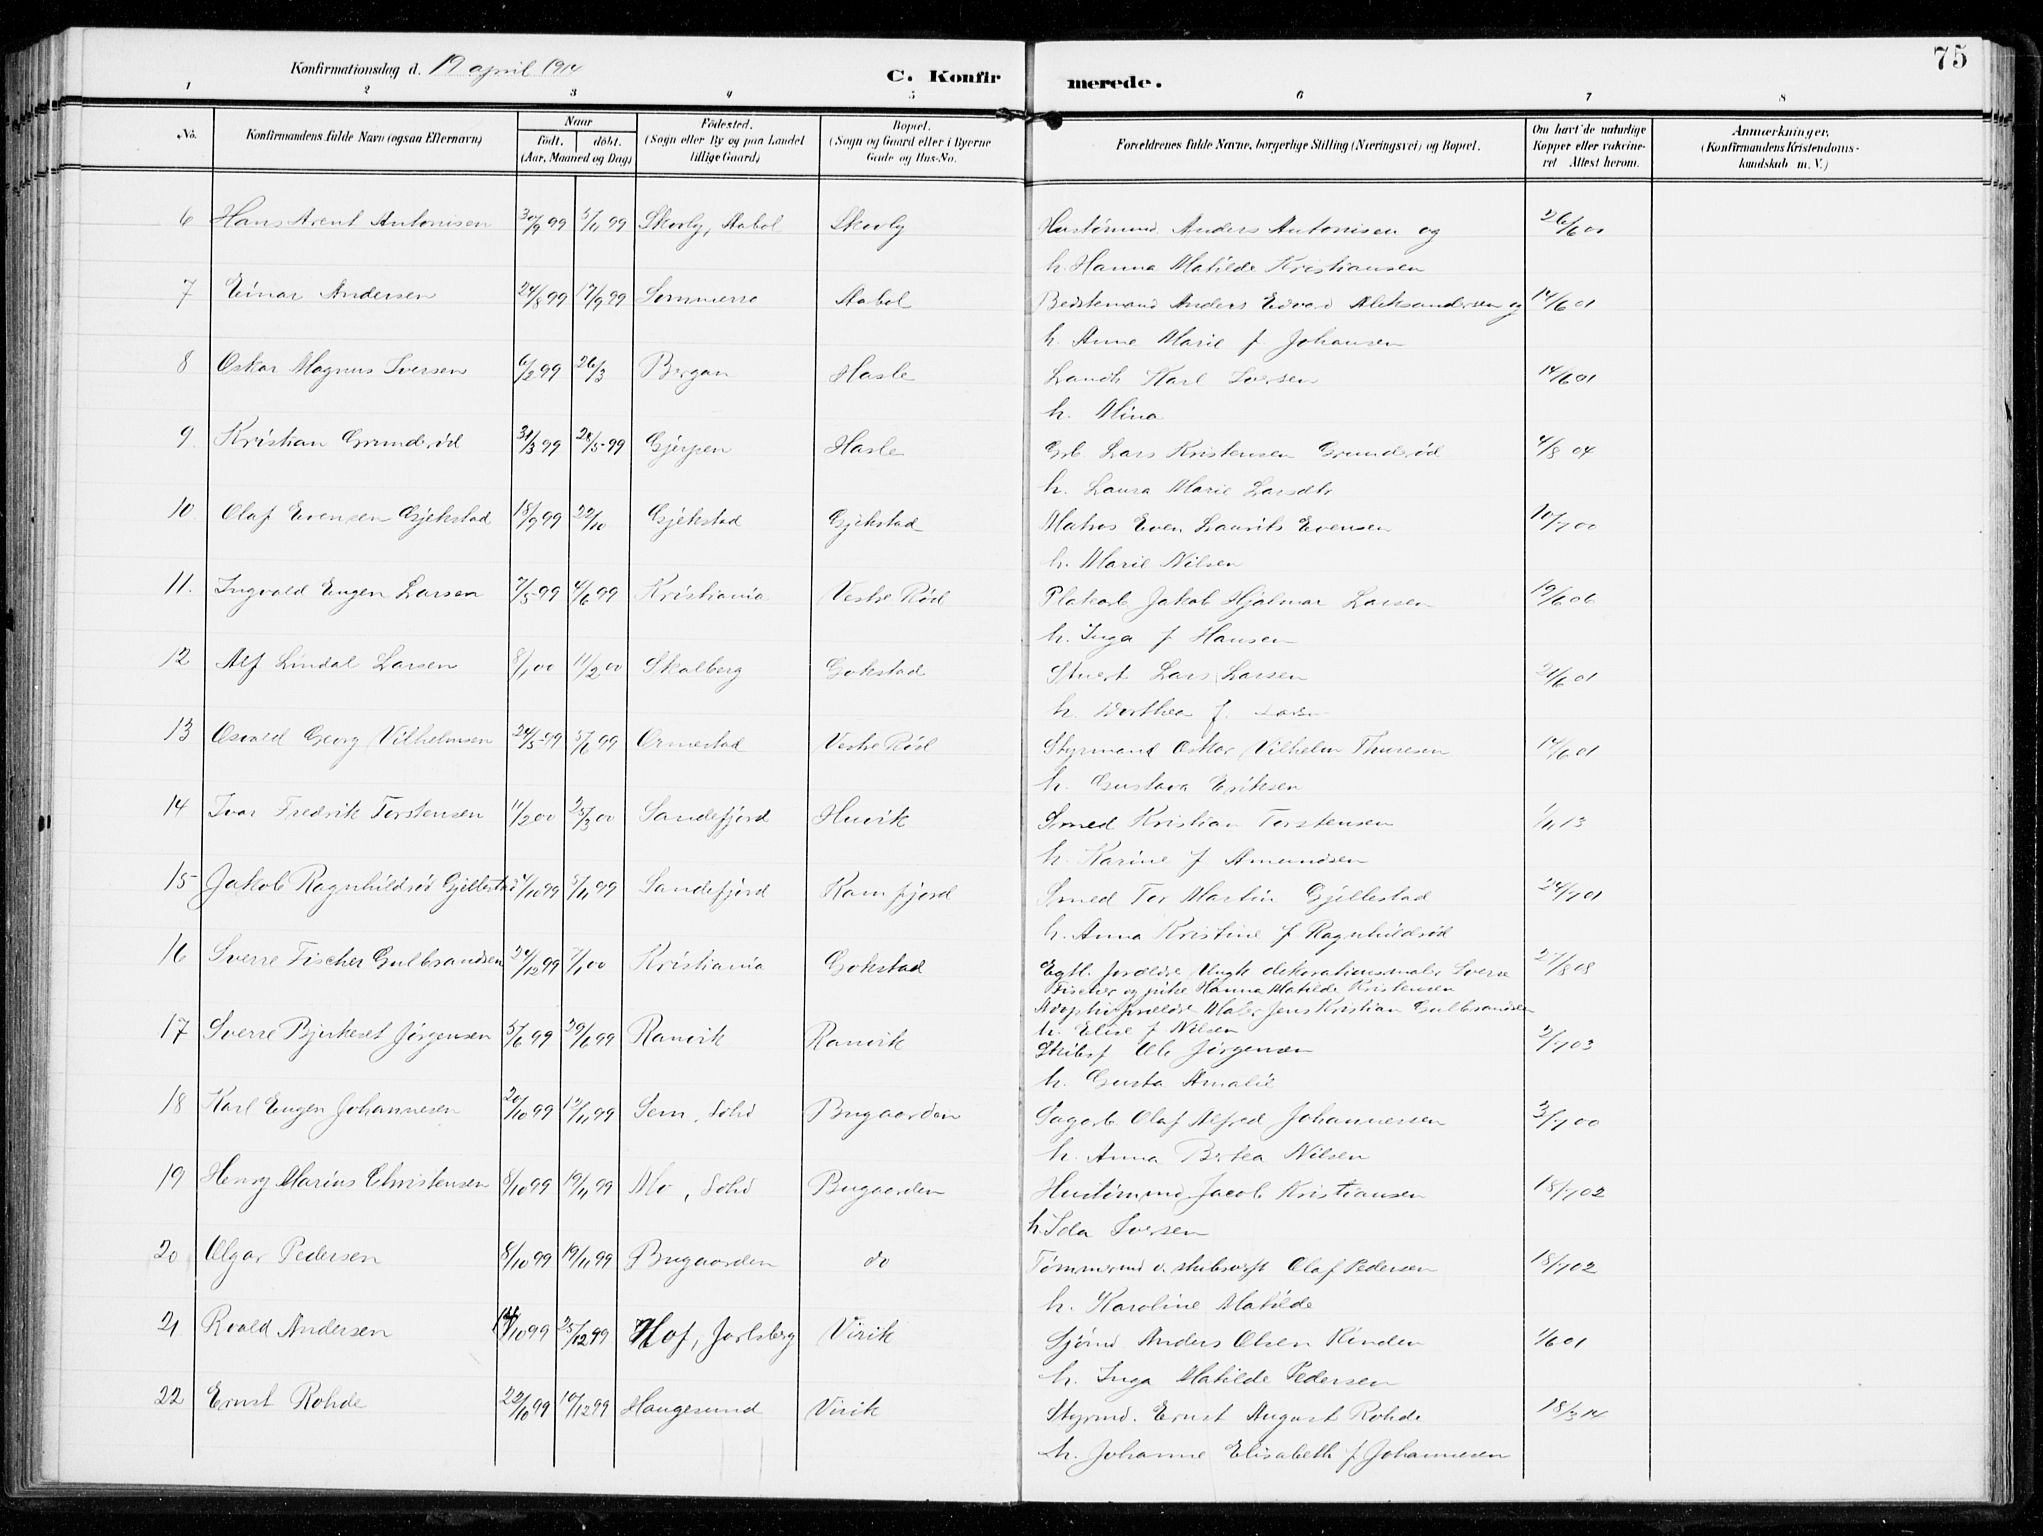 75
Konfirmationsdag d. 19 april 1914
C. Konfirmerede.
1 2 3 4 5 6 7 8
No.
Konfirmandens fulde Navn (ogsaa Efternavn)
Naar
født. døbt.
(Aar, Maaned og Dag)
Fødested.
(Sogn eller By og paa Landet
tillige Gaard)
Bopæl.
(Sogn og Gaard eller i Byerne
Gade og Hus-No.
Forældrenes fulde Navne, borgerlige Stilling (Næringsvei) og Bopæl.
Om havt de naturlige
Kopper eller vakcine-
ret Attest herom.
Anmærkninger.
(Konfirmandens Kristendoms-
kundskab m. V.)
6 Hans Arent Antonisen 30/9 99 5/11 99 Skovly, Aabol Skovly Hustømmd Anders Antonisen og 26/6 01
h. Hanna Matilde Kristiansen
7 Einar Andersen 24/8 99 17/9 99 Sommerro Aabol Bedstemand Anders Edvard Aleksandersen og 14/6 01
h. Anne Marie f Johansen
8 Oskar Magnus Iversen 6/2 99 26/3 Bergan Hasle Landh Karl Iversen 14/6 01
h. Mina
9. Kristian Grunderød 31/3 99 28/5 99 Gjerpen Hasle Grb Lars Kristensen Grunderød 4/8 04
h. Laura Marie Larsdtr
10 Olaf Evensen Gjekstad 18/9 99 22/10 Gjekstad Gjekstad Matros Even Laurits Evensen 10/7 00
h. Marie Nilsen
11. Ingvald Eugen Larsen 7/5 99 4/6 99 Kristiania Vestre Rød Platearb Jakob Hjalmar Larsen 19/6 06
h. Inga f Hansen
12 Alf Lindal Larsen 8/1 00 11/2 00 Skalberg Gokstad Stuert Lars Larsen 21/6 01
h. Dorthea f.
13 Osvald Georg Vilhelmsen 24/5 99 5/6 99 Ormestad Vestre Rød Styrmand Oskar Vilhelm Thuresen 14/6 01
h. Gustava Eriksen
14 Ivar Fredrik Torstensen 11/2 00 25/3 00 Sandefjord Huvik Smed Kristian Torstensen 1/11 13
h. Karine f Amundsen
15 Jakob Ragnhildrød Gjellestad 4/10 99 5/11 99 Sandefjord Kamfjord Smed Tor Martin Gjellestad 24/7 01
h. Anna Kristine f Ragnhildrød
16 Sverre Fischer Gulbrandsen 24/12 99 7/1 00 Kristiania Gokstad Egtl. forældre Ungk dekorationsmaler Sverre 27/8 08
Fischer og pike Hanna Matilde Kristensen
Adoptivforældre Maler Jens Kristian Gulbrandsen
h. Elise f Nilsen
17 Sverre Bjerkeset Jørgensen 5/6 99 29/6 99 Ranvik Ranvik Skibsf Ole Jørgensen 2/7 03
h. Gusta Amalie
18 Karl Eugen Johannesen 20/10 99 12/11 99 Sem, Sthd Bugaarden Sagarb. Olaf Alfred Johannessen 3/7 00
h. Anna Bertea Nilsen
19 Henry Marius Christensen 8/10 99 19/11 99 Mo, Sthd Bugaarden Hustømmd Jacob Kristiansen 18/7 02
h. Ida Iversen
20 Olgar Pedersen 8/10 99 19/11 99 Bugaarden do Tømmermd v. skibsverft Olaf Pedersen 18/7 02
h. Karoline Matilde
21 Roald Andersen 14/10 99 25/12 99 Hof, Jarlsberg Virik Sjømd Anders Olsen Rinden 1/6 01
h. Inga Matilde Pedersen
22 Ernst Rohde 22/10 99 10/12 99 Haugesund Virik Styrmd. Ernst August Rohde 18/3 14
h. Johanne Elisabeth f Johannesen